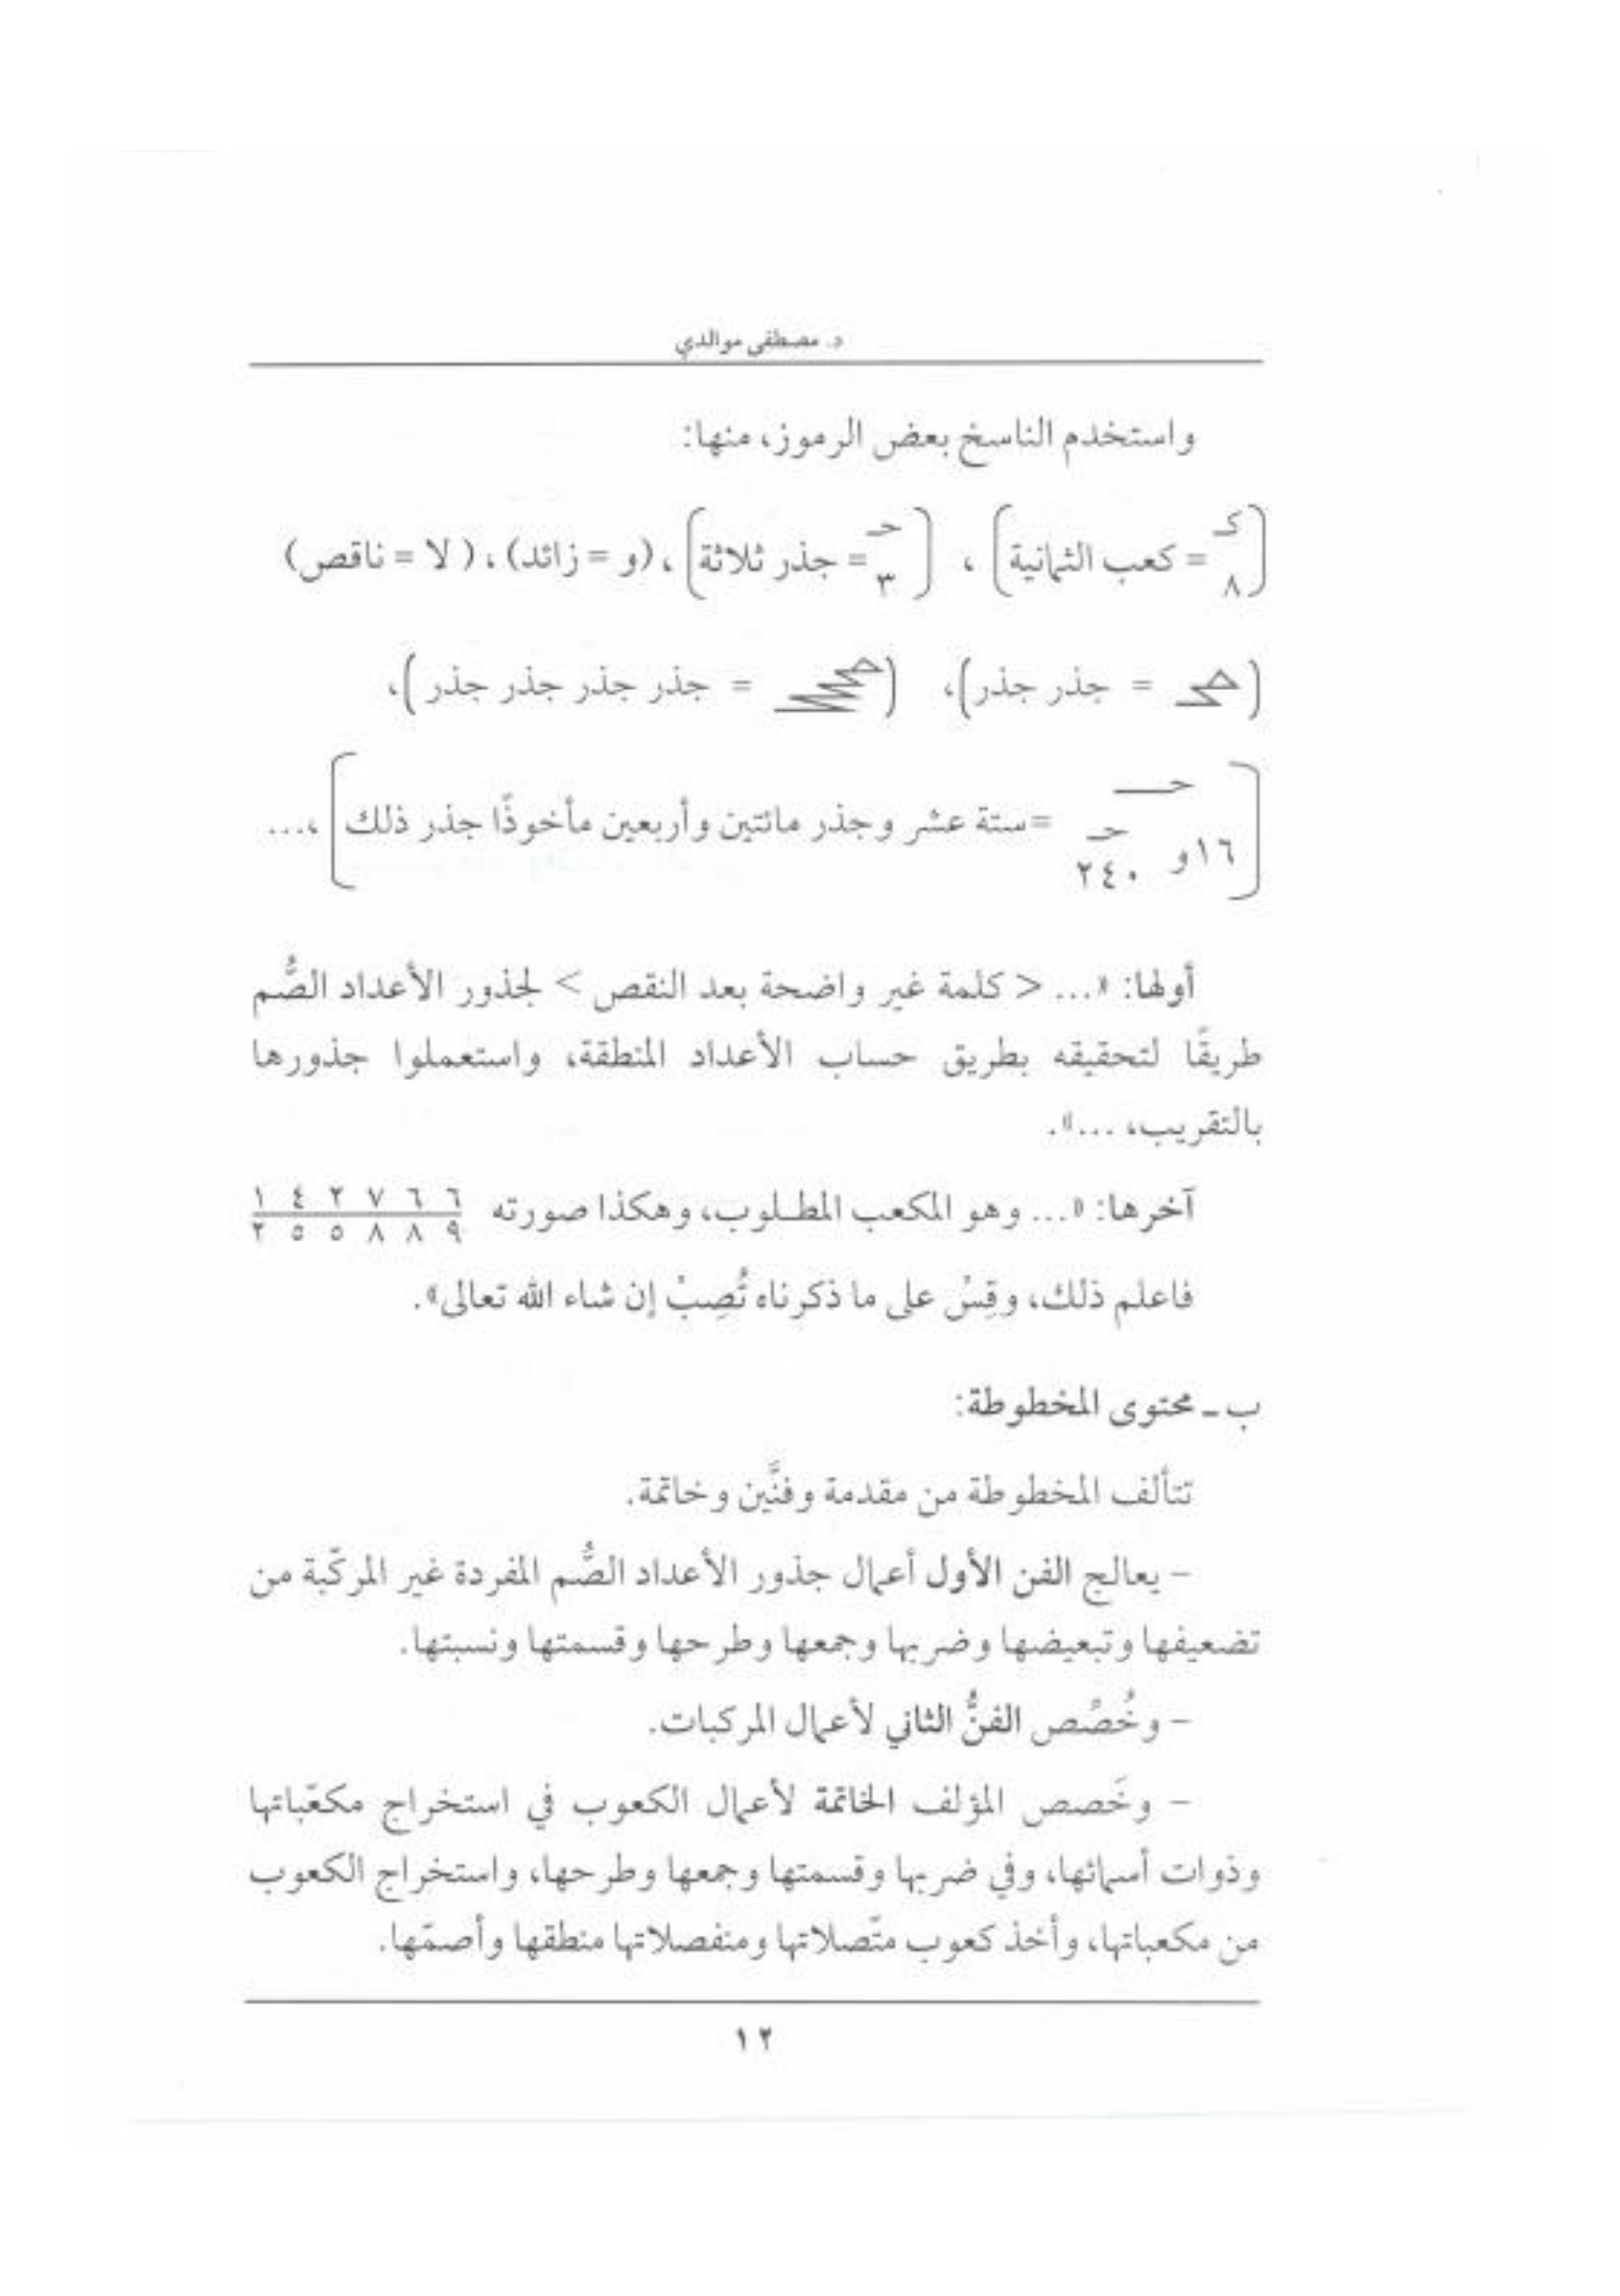 د. مصطفى موالدي
واستخدم الناسخ بعض الرموز، منها:
(كـ ٨ = كعب الثمانية) ، (حـ ٣ = جذر ثلاثة)، (و = زائد)، ( لا = ناقص)
( = جذر جذر)، ( = جذر جذر جذر جذر)،
(حـ ١٦و حـ ٢٤٠ =ستة عشر وجذر مائتين وأربعين مأخوذًا جذر ذلك)،...
أولها: «... < كلمة غير واضحة بعد النقص > لجذور الأعداد الصُّم
طريقًا لتحقيقه بطريق حساب الأعداد المنطقة، واستعملوا جذورها
بالتقريب، ...».
آخرها: «... وهو المكعب المطلوب، وهكذا صورته ١ ٤ ٢ ٧ ٦ ٦
٢ ٥ ٥ ٨ ٨ ٩
فاعلم ذلك، وقِسْ على ما ذكرناه تُصِبْ إن شاء الله تعالى».
ب ـ محتوى المخطوطة:
تتألف المخطوطة من مقدمة وفنَّين وخاتمة.
– يعالج الفن الأول أعمال جذور الأعداد الصُّم المفردة غير المركّبة من
تضعيفها وتبعيضها وضربها وجمعها وطرحها وقسمتها ونسبتها.
– وخُصِّص الفنُّ الثاني لأعمال المركبات.
– وخَصص المؤلف الخاتمة لأعمال الكعوب في استخراج مكعّباتها
وذوات أسمائها، وفي ضربها وقسمتها وجمعها وطرحها، واستخراج الكعوب
من مكعباتها، وأخذ كعوب متّصلاتها ومنفصلاتها منطقها وأصمّها.
١٢